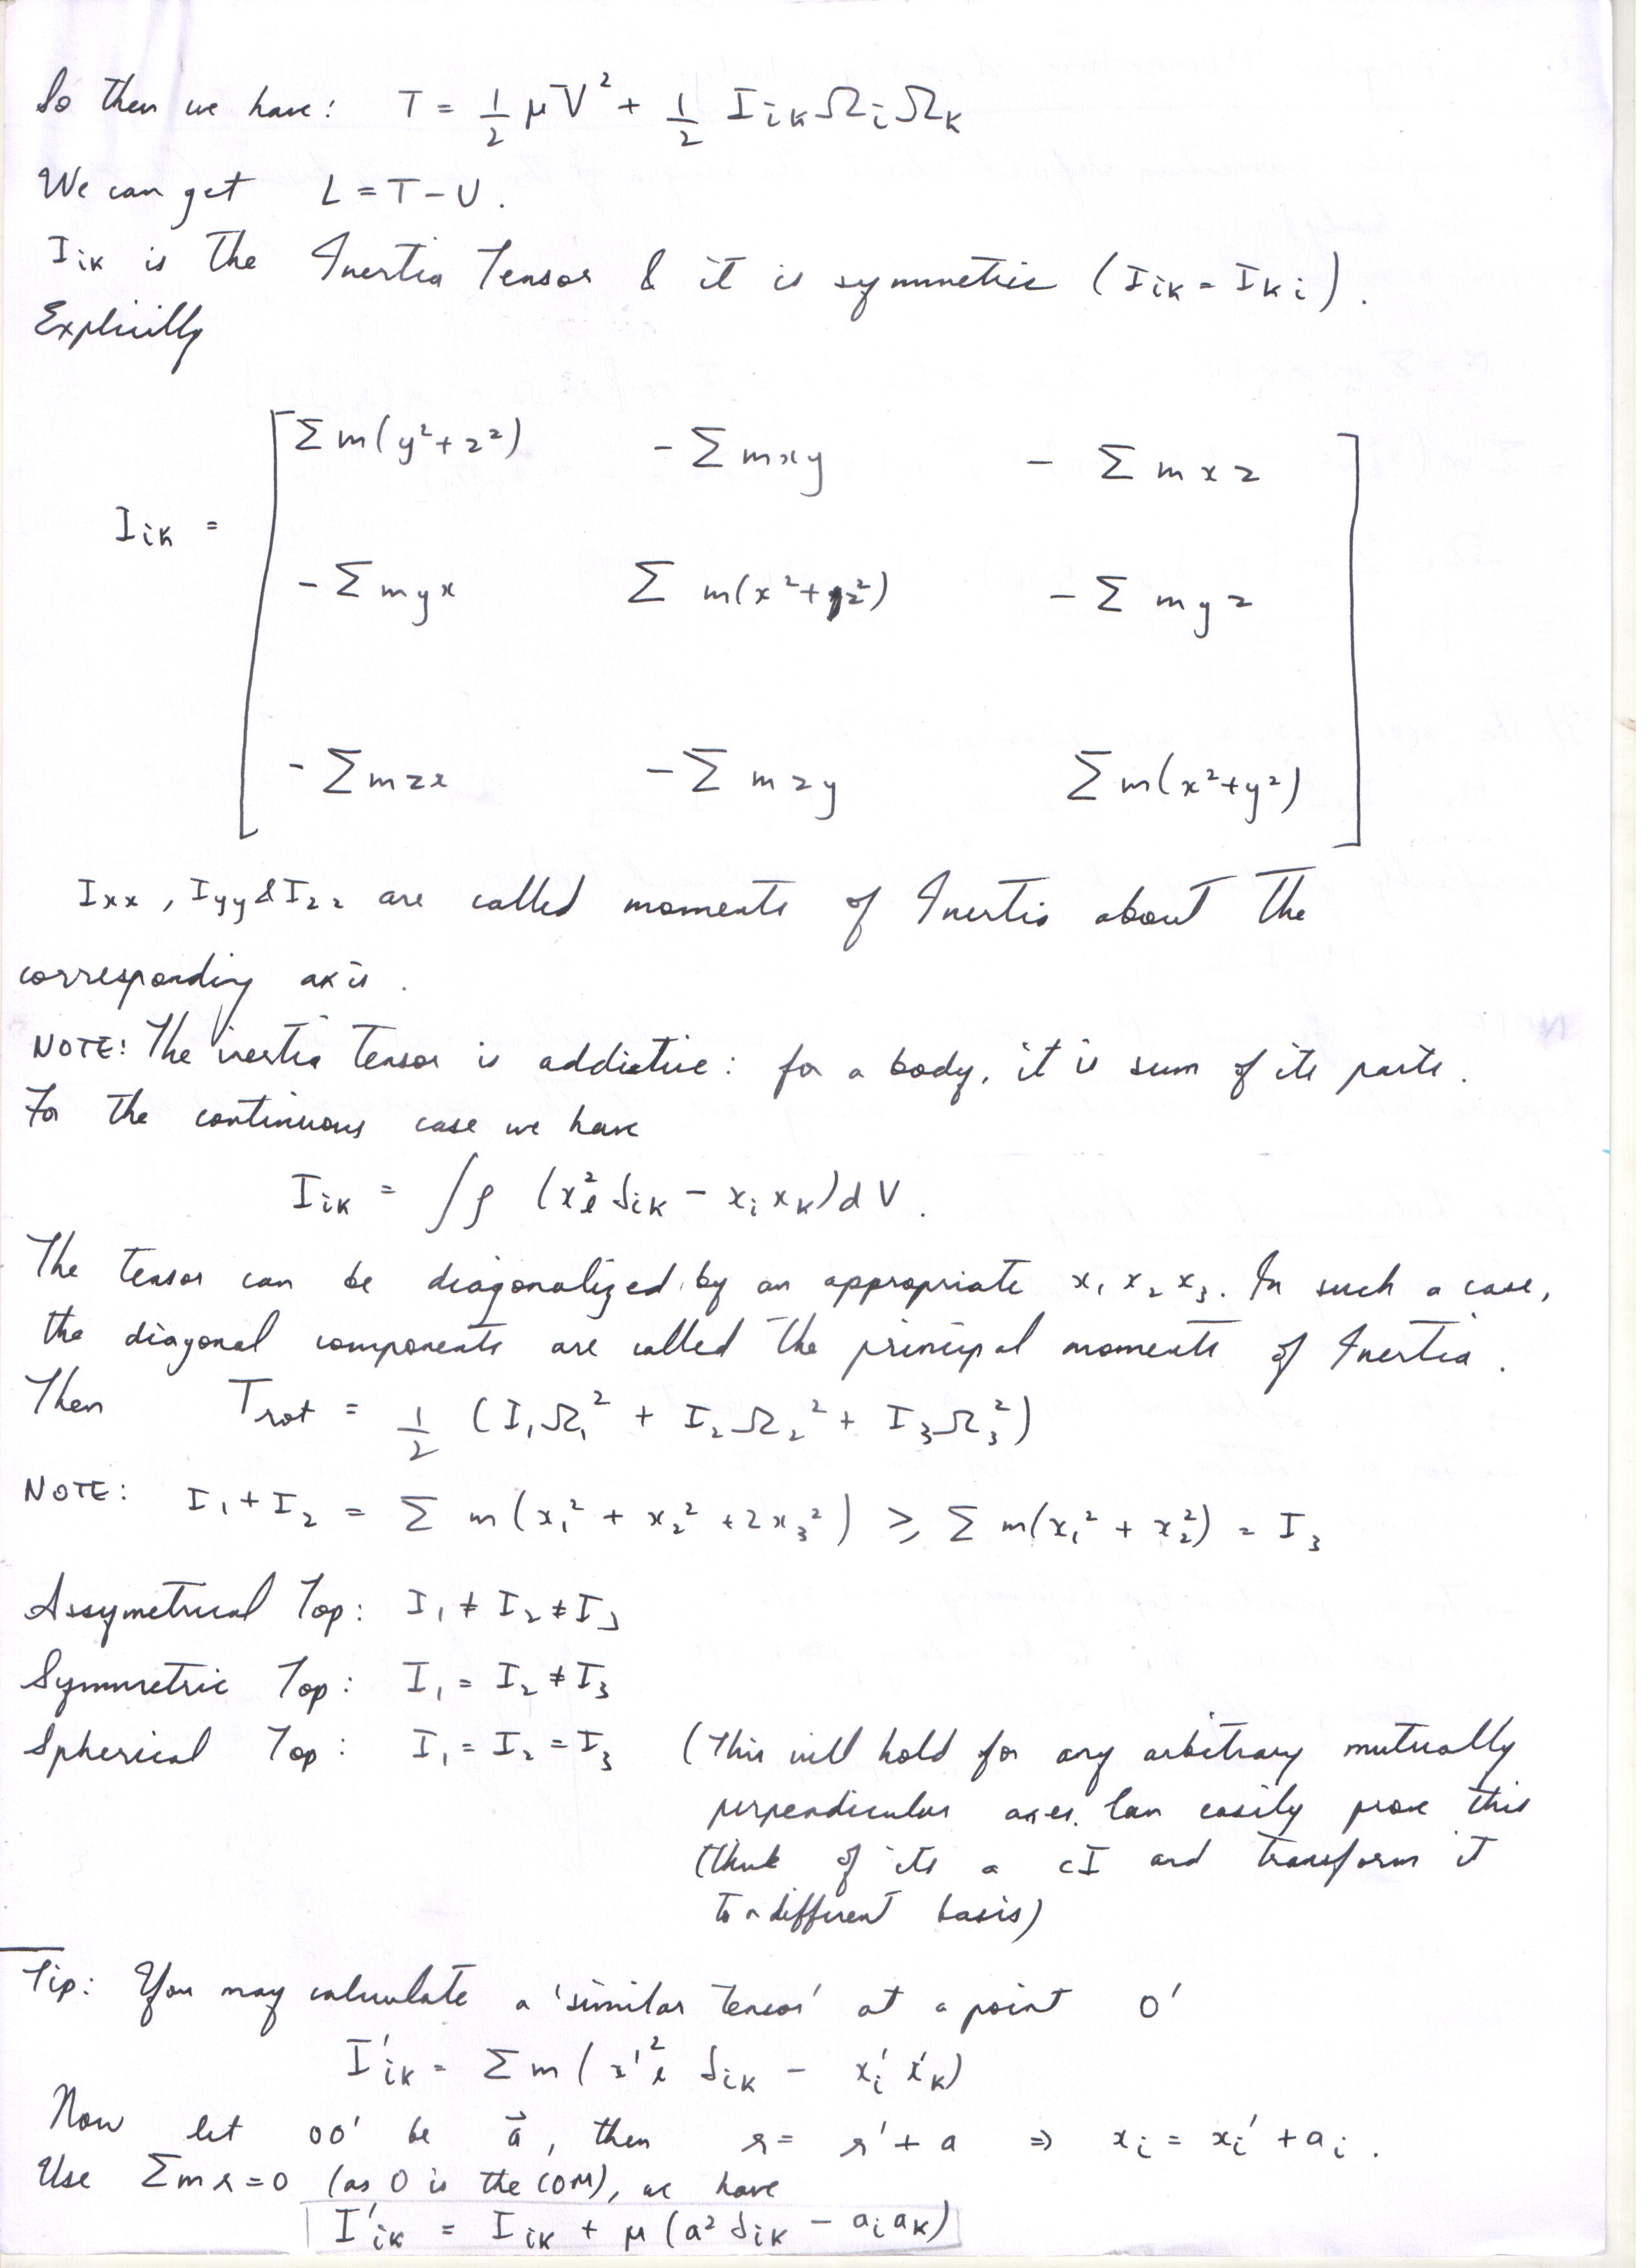 So then we have: T = 1/2 μV² + 1/2 I_ik Ω_i Ω_k
We can get L = T - U.
I_ik is the Inertia Tensor & it is symmetric (I_ik = I_ki).
Explicitly
I_ik = [ Σm(y²+z²) -Σmxy -Σmxz
-Σmyx Σm(x²+z²) -Σmyz
-Σmzx -Σmzy Σm(x²+y²) ]
I_xx, I_yy & I_zz are called moments of Inertia about the
corresponding axis.
NOTE: The inertia Tensor is addictive: for a body, it is sum of its parts.
For the continuous case we have
I_ik = ∫ρ (x_l² δ_ik - x_i x_k) dV.
The tensor can be diagonalized by an appropriate x₁ x₂ x₃. In such a case,
the diagonal components are called the principal moments of Inertia.
Then T_rot = 1/2 (I₁Ω₁² + I₂Ω₂² + I₃Ω₃²)
NOTE: I₁ + I₂ = Σ m(x₁² + x₂² + 2x₃²) ≥ Σ m(x₁² + x₂²) = I₃
Assymetrical Top: I₁ ≠ I₂ ≠ I₃
Symmetric Top: I₁ = I₂ ≠ I₃
Spherical Top: I₁ = I₂ = I₃ (This will hold for any arbitrary mutually
perpendicular axes. Can easily prove this
(think of its a cI and transform it
to a different basis)
Tip: You may calculate a 'similar tensor' at a point O'
I'_ik = Σm(x'_l² δ_ik - x'_i x'_k)
Now let OO' be a⃗, then r = r' + a ⇒ x_i = x_i' + a_i.
Use Σmr=0 (as O is the COM), we have
I'_ik = I_ik + μ(a² δ_ik - a_i a_k)